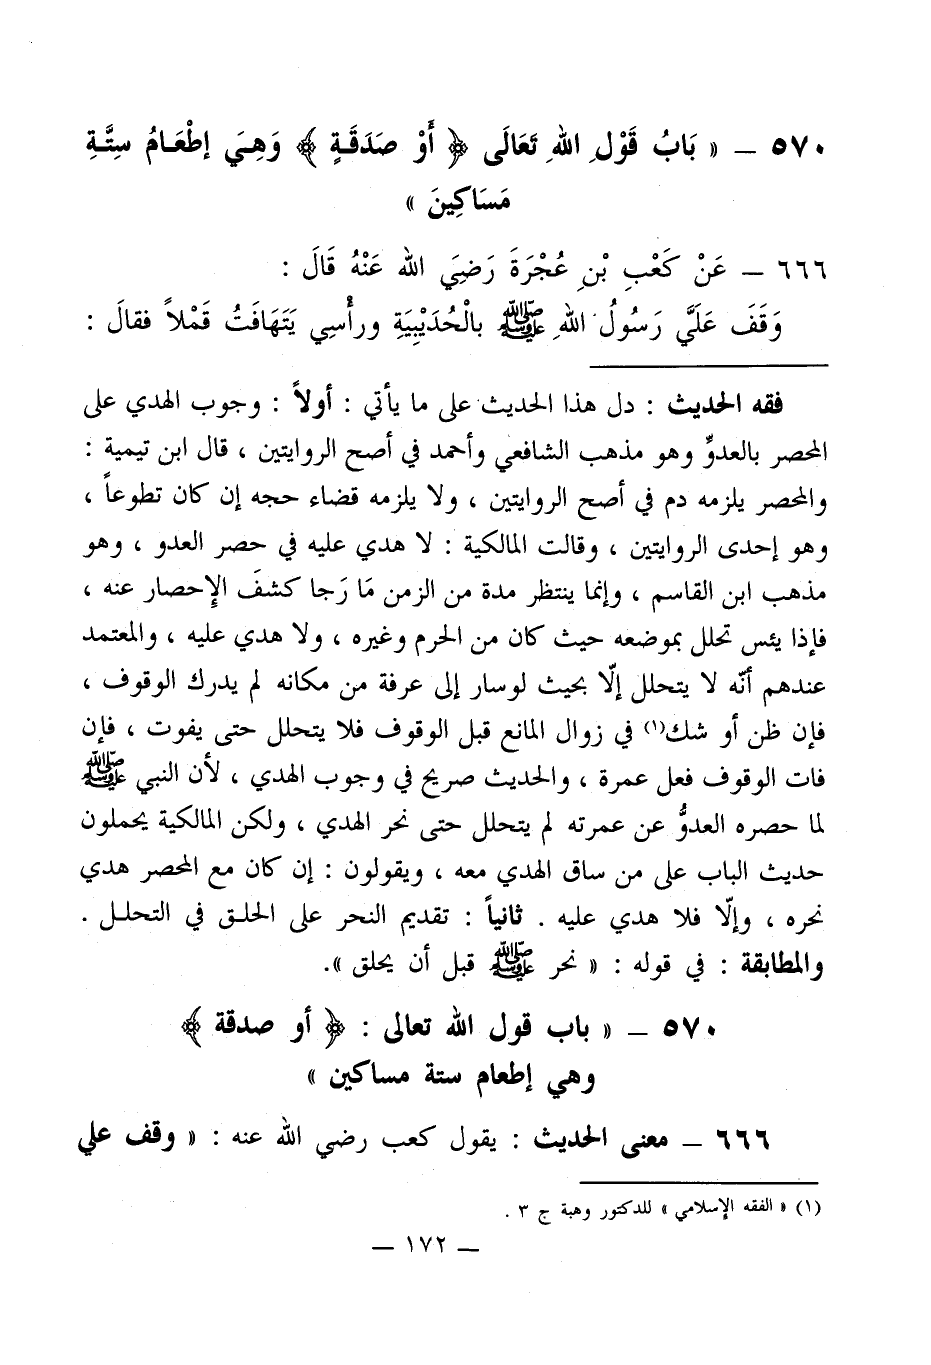 ٥٧٠ ــ « بَابُ قَوْلِ اللهِ تَعَالَى ﴿ أَوْ صَدَقَـةٍ ﴾ وَهِـيَ إطْعَـامُ سِتَّـةِ
مَسَاكِينَ »
٦٦٦ ــ عَنْ كَعْبِ بْنِ عُجْرَةَ رَضِيَ اللهُ عَنْهُ قَالَ :
وَقَفَ عَلَيَّ رَسُولُ اللهِ ﷺ بالْحُدَيْبِيَةِ ورأْسِي يَتَهَافَتُ قَمْلاً فقالَ :
فقه الحديث : دل هذا الحديث على ما يأتي : أولاً : وجوب الهدي على
المحصر بالعدوِّ وهو مذهب الشافعي وأحمد في أصح الروايتين ، قال ابن تيمية :
والمحصر يلزمه دم في أصح الروايتين ، ولا يلزمه قضاء حجه إن كان تطوعاً ،
وهو إحدى الروايتين ، وقالت المالكية : لا هدي عليه في حصر العدو ، وهو
مذهب ابن القاسم ، وإنما ينتظر مدة من الزمن مَا رَجا كشفَ الإِحصار عنه ،
فإذا يئس تحلل بموضعه حيث كان من الحرم وغيره ، ولا هدي عليه ، والمعتمد
عندهم أنّه لا يتحلل إلّا بحيث لوسار إلى عرفة من مكانه لم يدرك الوقوف ،
فإن ظن أو شك(١) في زوال المانع قبل الوقوف فلا يتحلل حتى يفوت ، فإن
فات الوقوف فعل عمرة ، والحديث صريح في وجوب الهدي ، لأن النبي ﷺ
لما حصره العدوُّ عن عمرته لم يتحلل حتى نحر الهدي ، ولكن المالكية يحملون
حديث الباب على من ساق الهدي معه ، ويقولون : إن كان مع المحصر هدي
نحره ، وإلّا فلا هدي عليه . ثانياً : تقديم النحر على الحلـق في التحلـل .
والمطابقة : في قوله : « نحر ﷺ قبل أن يحلق ».
٥٧٠ ــ « باب قول الله تعالى : ﴿ أو صدقة ﴾
وهي إطعام ستة مساكين »
٦٦٦ ــ معنى الحديث : يقول كعب رضي الله عنه : « وقف علي
(١) « الفقه الإسلامي » للدكتور وهبة ج ٣ .
ــ ١٧٢ ــ